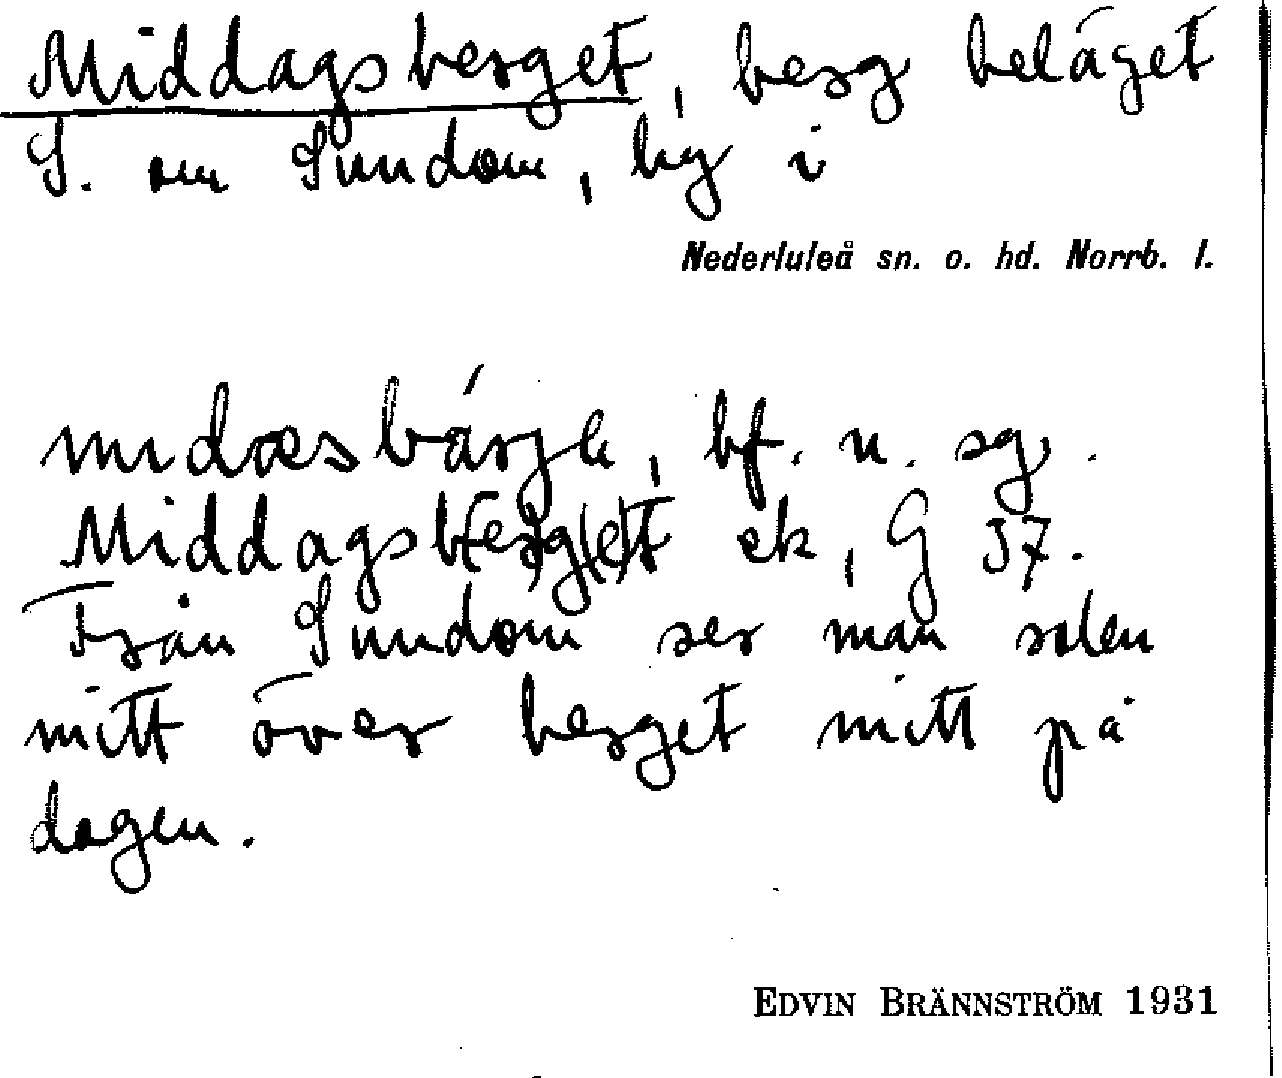 Middagsberget, berg beläget
S. om Sundom, by i
Nederluleå sn. o. hd. Norrb. l.
bf. n. sg.
Middagsb(er)g(e)t ek, G 37.
Från Sundom ser man solen
mitt över berget mitt på
dagen.
EDVIN BRÄNNSTRÖM 1931